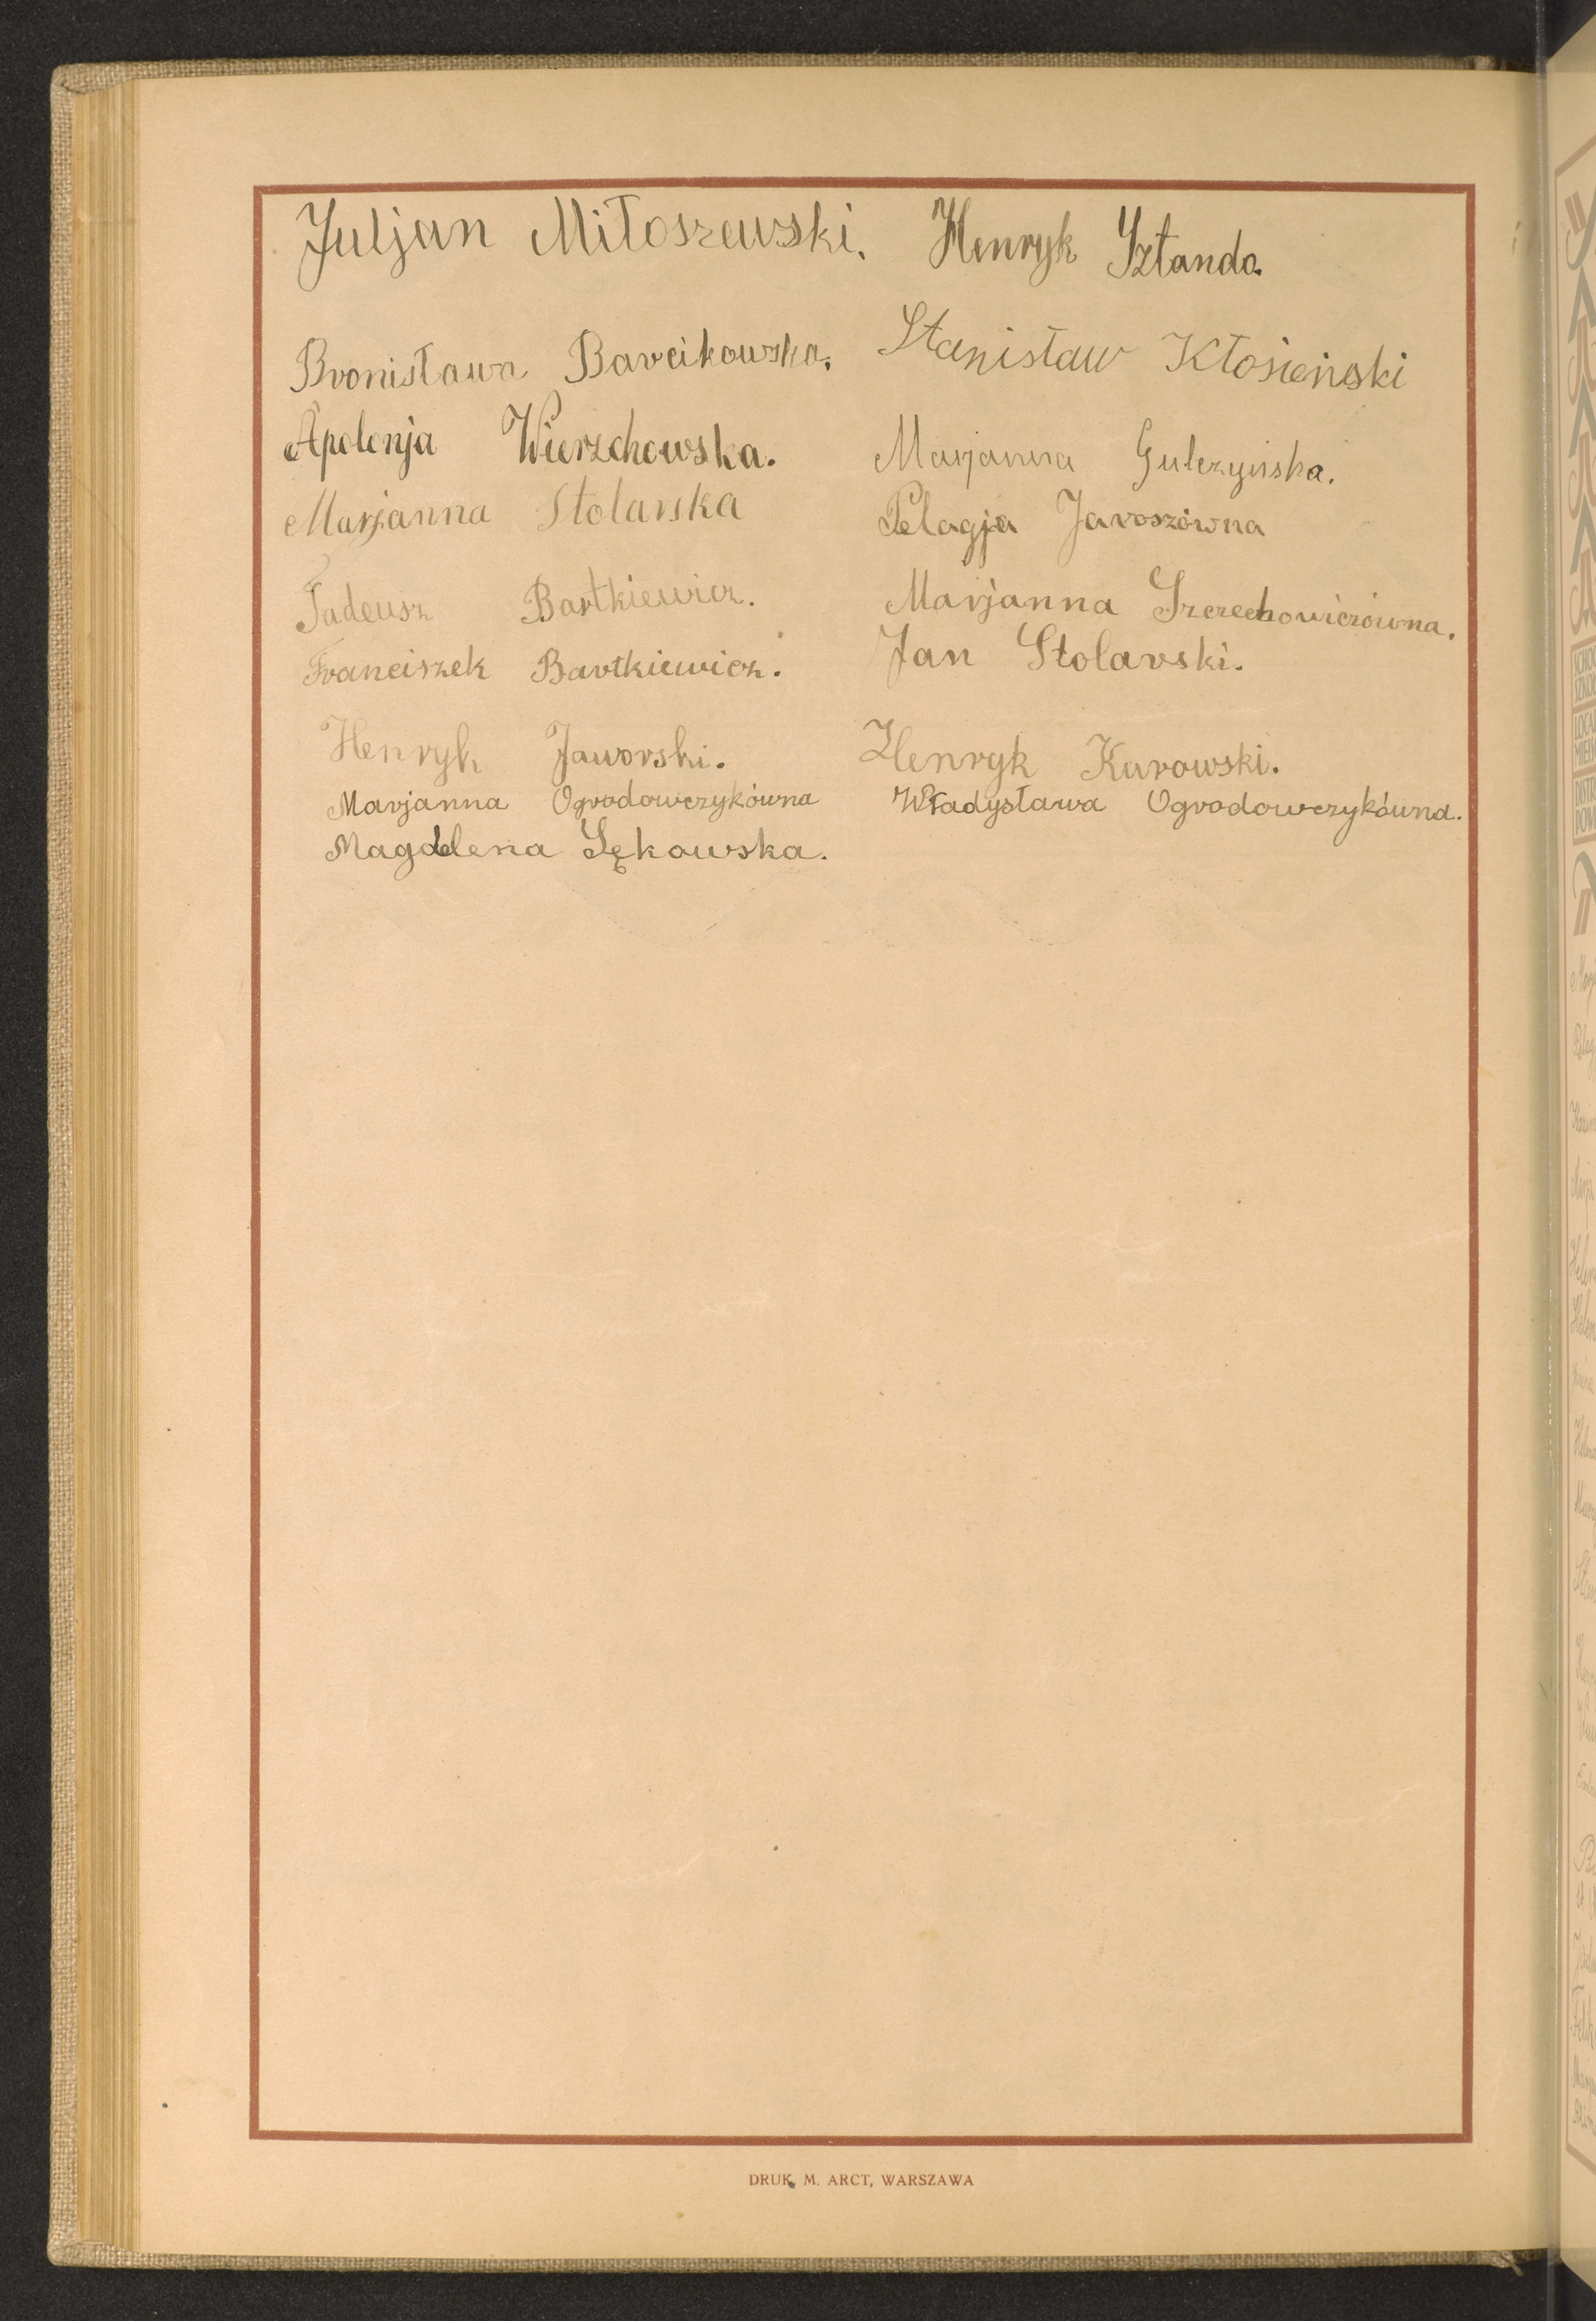 Juljan Miłoszewski. Henryk Sztanda.
Bronisława Barcikowska. Stanisław Kłosieński
Apolonja Wierzchowska. Marjanna Gulczyńska.
Marjanna Stolarska Pelagja Jaroszówna
Tadeusz Bartkiewicz. Marjanna Szczechowiczówna.
Franciszek Bartkiewicz. Jan Stolarski.
Henryk Jaworski. Henryk Kurowski.
Marjanna Ogrodowczykówna Władysława Ogrodowczykówna.
Magdalena Sękowska.
DRUK M. ARCT, WARSZAWA